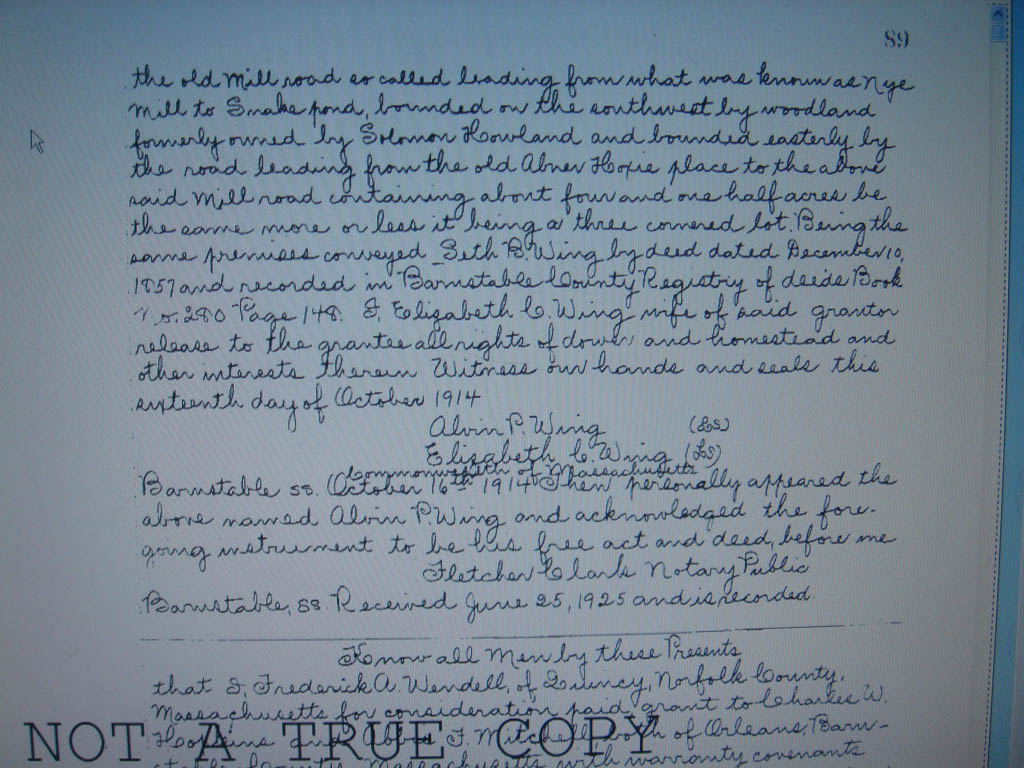 89
the old Mill road so called leading from what was known as Nye
Mill to Snake pond, bounded on the southwest by woodland
formerly owned by Solomon Howland and bounded easterly by
the road leading from the old Abner Hoxie place to the above
said Mill road containing about four and one half acres be
the same more or less it being a three cornered lot. Being the
same premises conveyed Seth B. Wing by deed dated December 10,
1857 and recorded in Barnstable County Registry of deeds Book
No. 280 Page 148. I, Elizabeth C. Wing wife of said grantor
release to the grantee all rights of dower and homestead and
other interests therein Witness our hands and seals this
sixteenth day of October 1914
Alvin P. Wing (LS)
Elizabeth C. Wing (LS)
Commonwealth of Massachusetts
Barnstable ss. October 16th 1914 Then personally appeared the
above named Alvin P. Wing and acknowledged the fore-
going instrument to be his free act and deed, before me
Fletcher Clark Notary Public
Barnstable, ss. Received June 25, 1925 and is recorded.
Know all Men by these Presents
that I, Frederick A. Wendell, of Quincy, Norfolk County,
Massachusetts for consideration paid grant to Charles W.
F. Mitchell both of Orleans, Barn-
County, Massachusetts with warranty covenants
NOT A TRUE COPY